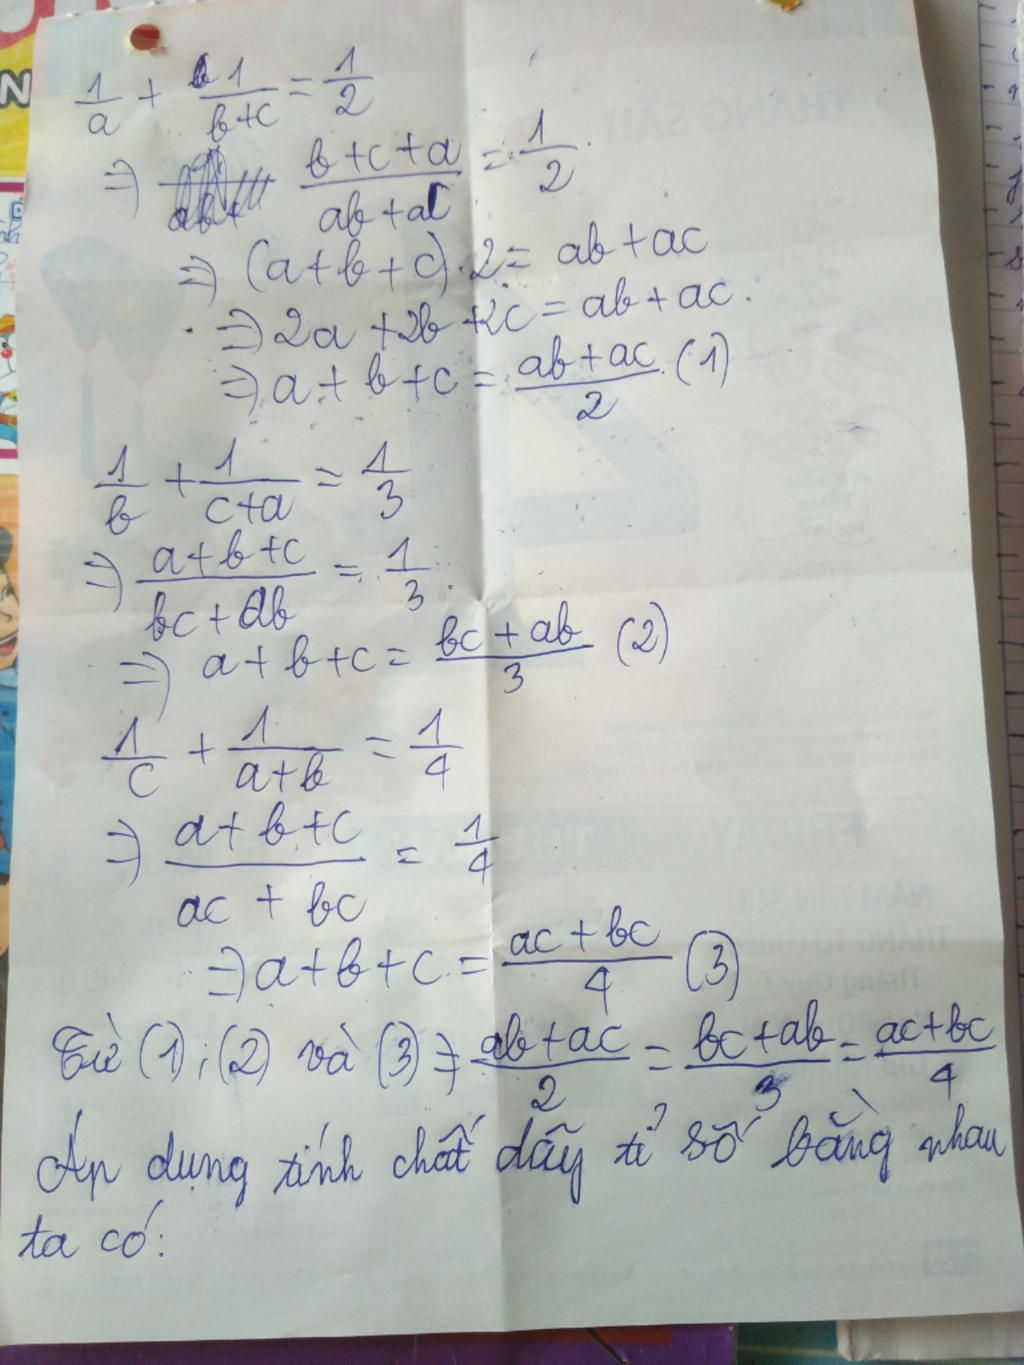 1/a + 1/(b+c) = 1/2
⇒ (b+c+a)/(ab+ac) = 1/2
⇒ (a+b+c).2 = ab+ac
⇒ 2a+2b+2c = ab+ac.
⇒ a+b+c = (ab+ac)/2 (1)
1/b + 1/(c+a) = 1/3
⇒ (a+b+c)/(bc+ab) = 1/3
⇒ a+b+c = (bc+ab)/3 (2)
1/c + 1/(a+b) = 1/4
⇒ (a+b+c)/(ac+bc) = 1/4
⇒ a+b+c = (ac+bc)/4 (3)
Từ (1); (2) và (3) ⇒ (ab+ac)/2 = (bc+ab)/3 = (ac+bc)/4
Áp dụng tính chất dãy tỉ số bằng nhau
ta có: